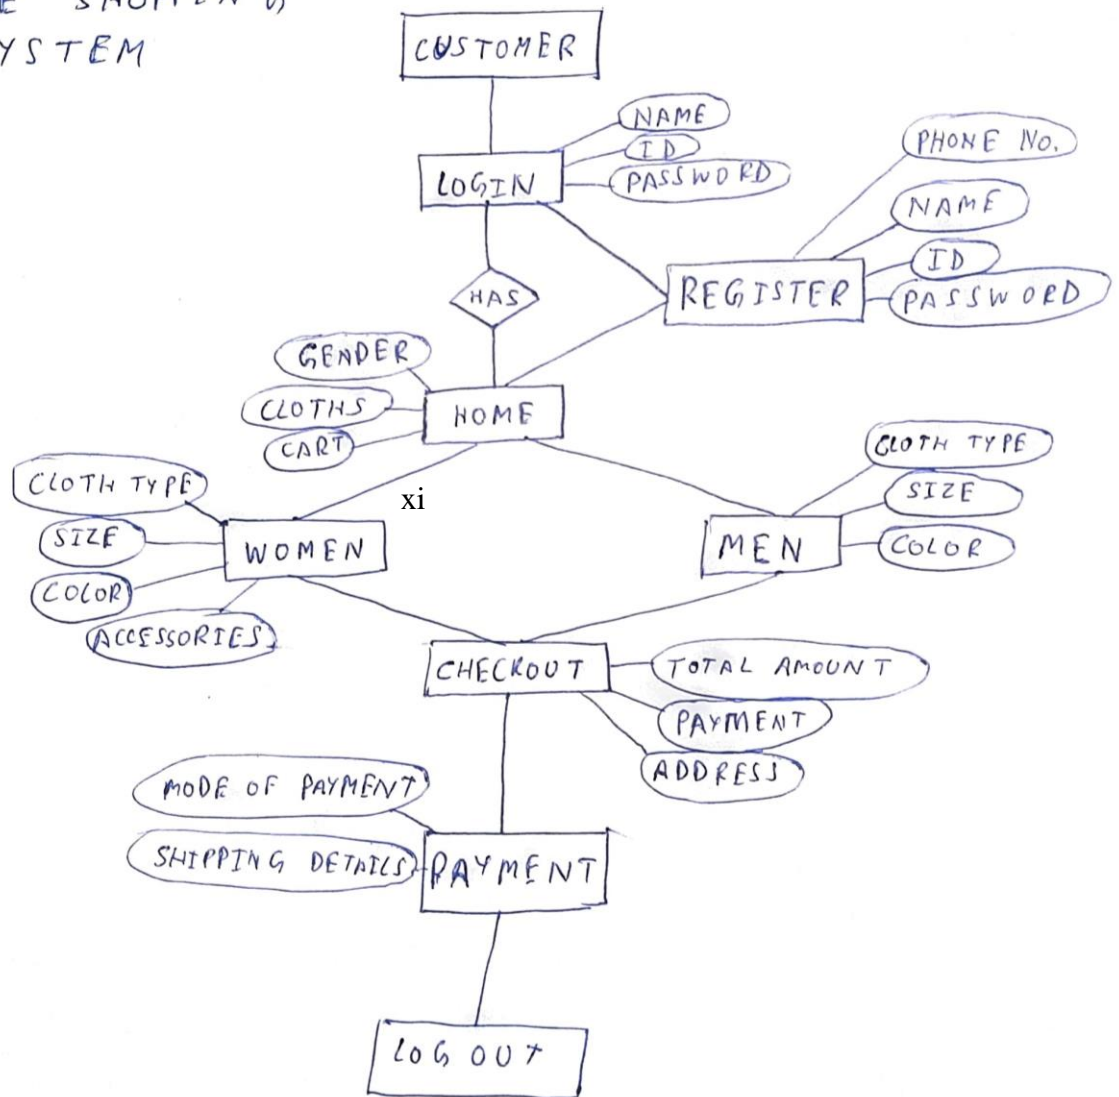 SYSTEM
CUSTOMER
NAME
ID
PASSWORD
LOGIN
PHONE NO.
NAME
ID
PASSWORD
REGISTER
HAS
GENDER
CLOTHS
CART
HOME
CLOTH TYPE
SIZE
COLOR
ACCESSORIES
WOMEN
xi
CLOTH TYPE
SIZE
COLOR
MEN
CHECKOUT
TOTAL AMOUNT
PAYMENT
ADDRESS
MODE OF PAYMENT
SHIPPING DETAILS
PAYMENT
LOG OUT